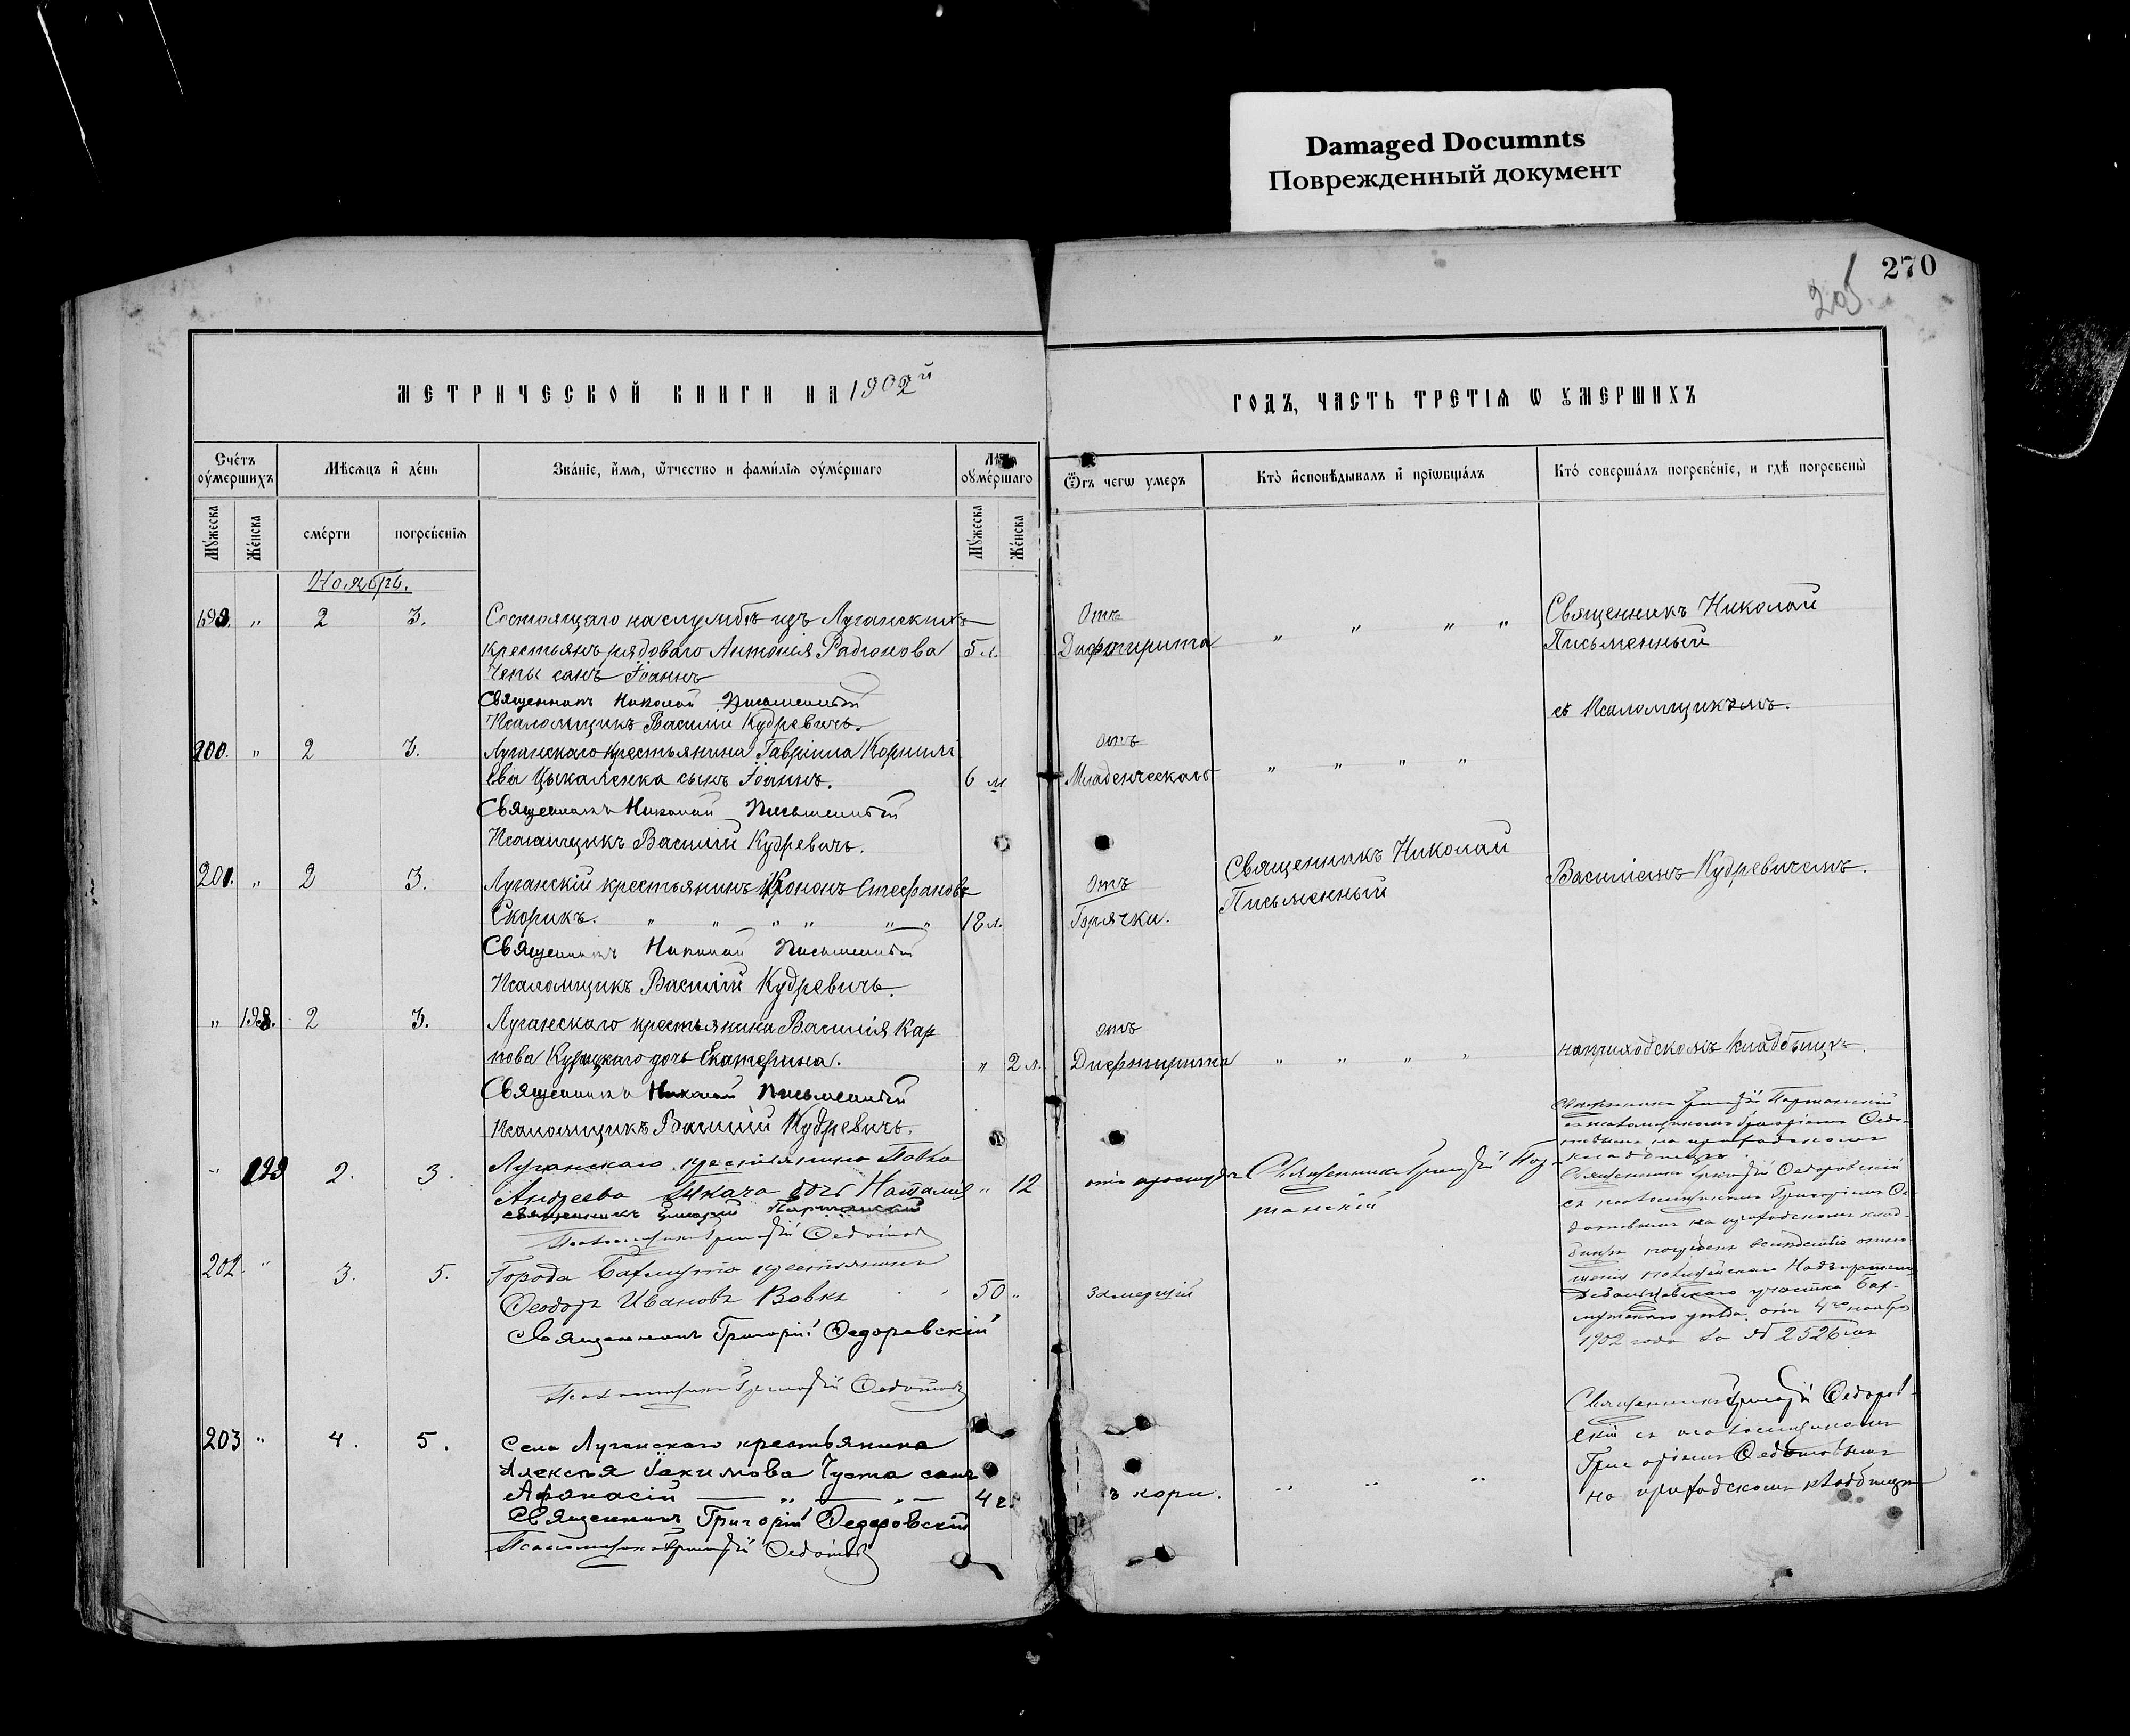 Damaged Documnts
Поврежденный документ
270
205
МЕТРИЧЕСКОЙ КНИГИ НА 1902й
ГОДЪ, ЧАСТЬ ТРЕТІЯ Ѡ УМЕРШИХЪ
Счетъ оумершихъ
Мѣсяцъ и день
Званіе, имя, отчество и фамилія оумершаго
Лѣта оумершаго
Ѿъ чегѡ умеръ
Кто исповѣдывалъ и пріѡбщалъ
Кто совершалъ погребеніе, и гдѣ погребены
Мужеска
Женска
смерти
погребенія
Мужеска
Женска
Ноябрь.
199. " 2 3. Состоящаго на службѣ изъ Луганскихъ
крестьянъ рядоваго Антонія Радіонова 5 л.
Чепы сынъ Іоаннъ
Священникъ Николай Письменный
Псаломщикъ Василій Кудревичъ.
Отъ
Дифтирита " " " "
Священникъ Николай
Письменный
съ Псаломщикомъ.
200. " 2 3. Луганскаго крестьянина Гавріила Корнилі
ева Цыкаленка сынъ Іоаннъ. 6 м
Священникъ Николай Письменный
Псаломщикъ Василій Кудревичъ.
отъ
Младенческаго " " " "
201. " 2 3. Луганскій крестьянинъ Стефановъ
Скорикъ. " " " " " " 18 л.
Священникъ Николай Письменный
Псаломщикъ Василій Кудревичъ.
Отъ
Горячки.
Священникъ Николай
Письменный
Василіемъ Кудревичемъ.
" 198. 2 3. Луганскаго крестьянина Василія Кар
пова дочь Екатерина. " 2 л.
Священникъ Николай Письменный
Псаломщикъ Василій Кудревичъ.
отъ
Дифтирита " " " "
на приходскомъ кладбищѣ.
" 199 2. 3. Луганскаго крестьянина Павла
Андреева Ткача дочь Наталія " 12
Псаломщикъ Григорій Федотовъ
отъ простуды
Священникъ
кладбищѣ
202. " 3. 5. Города Бахмута крестьянинъ
Феодоръ Ивановъ Вовкъ 50 "
Священникъ Григорій Федоровскій
Псаломщикъ Григорій Федотовъ
замерзшій
Священникъ Григорій Федоровскій
съ псаломщикомъ Григоріемъ Фе-
дотовымъ на приходскомъ клад-
бищѣ вслѣдствіе отно-
шенія полицейскаго Надзирателя
участка Бах-
мутскаго уѣзда отъ 4го ноября
1902 года за № 2526мъ
203 " 4. 5. Села Луганскаго крестьянина
Алексѣя Іакимова Чуста сынъ
Афанасій 4 г.
Священникъ Григорій Федоровскій
Псаломщикъ Григорій Федотовъ
ъ кори. " " "
Священникъ Григорій Федоров-
скій съ псаломщикомъ
Григоріемъ Федотовымъ
на приходскомъ кладбищѣ